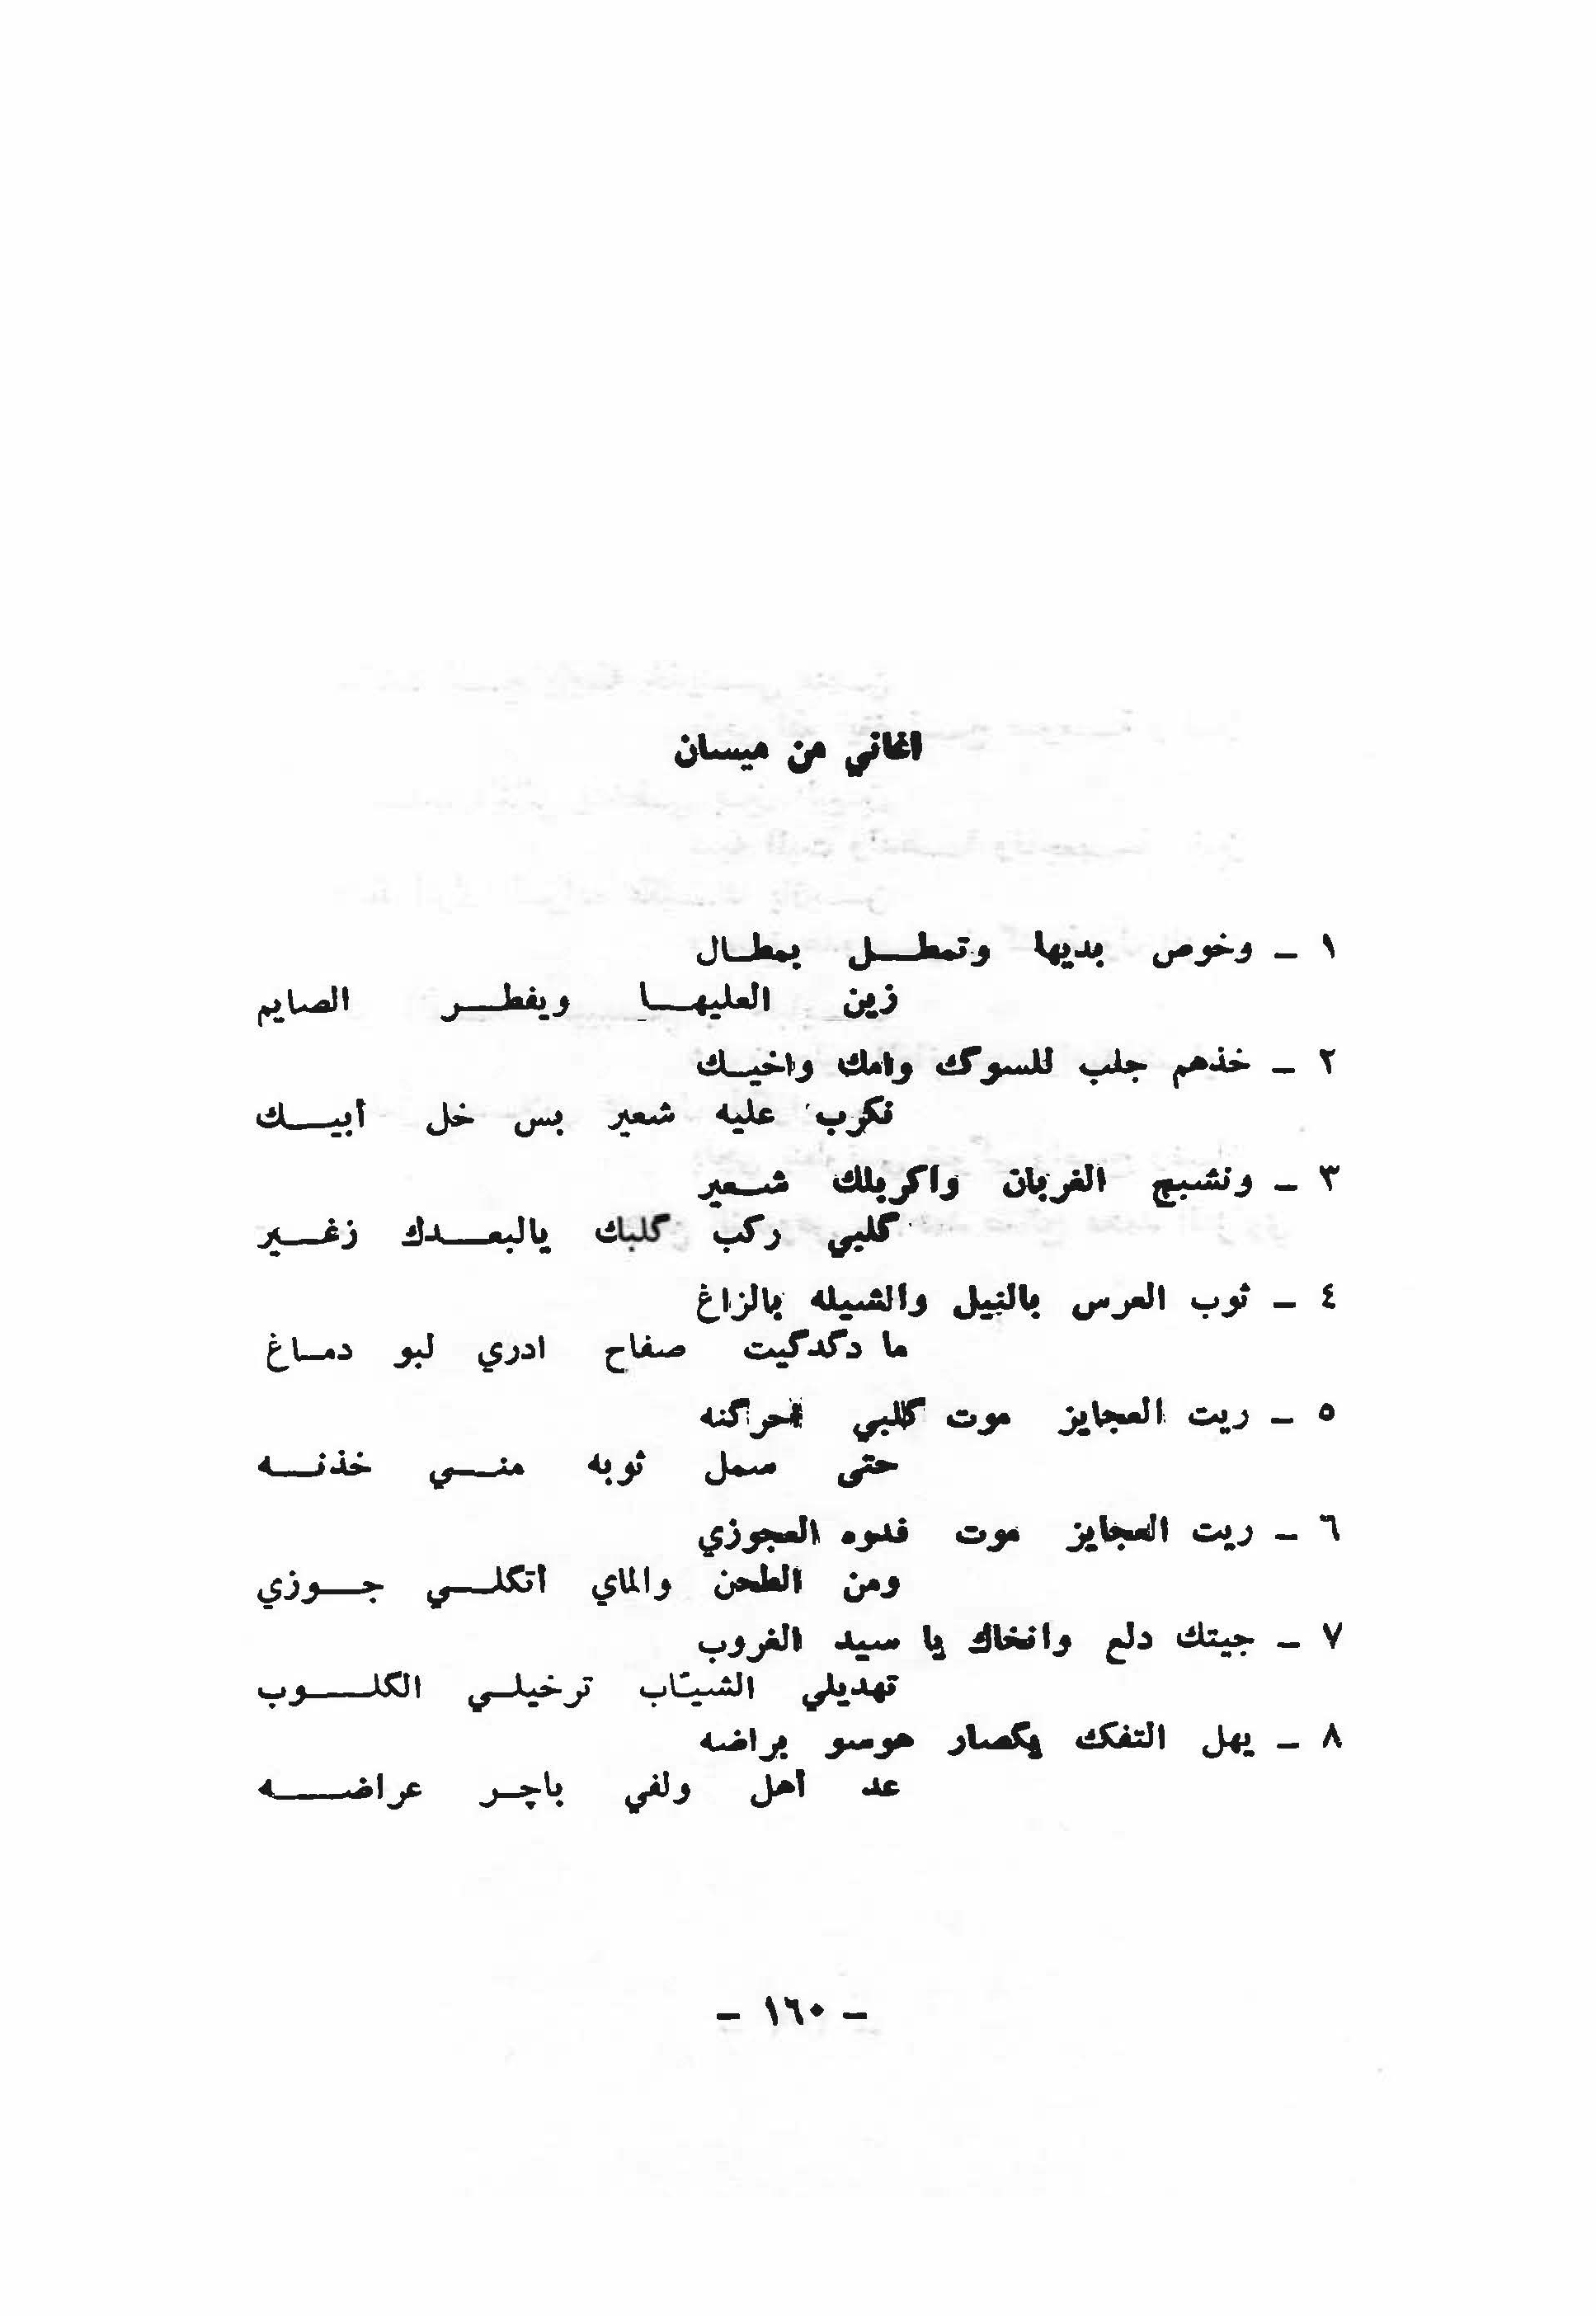 اغاني من ميسان
١ - وخوص بديها وتمطل بمطال
زين العليها ويفطر الصايم
٢ - خذهم جلب للسوگ وامك واخيك
نكرب عليه شعير بس خل أبيك
٣ - ونشبج الغربان واكربلك شعير
گلبي ركب گلبك يالبعدك زغير
٤ - ثوب العرس بالنيل والشيله بالزاغ
ما دگدگيت صفاح ادري لبو دماغ
٥ - ريت العجايز موت گلبي احرگنه
حتى سمل ثوبه مني خذنه
٦ - ريت العجايز موت فدوه العجوزي
ومن الطحن والماي أتگلي جوزي
٧ - جيتك دلع وانخاك يا سيد الغروب
تهديلي الشيّاب ترخيلي الگلوب
٨ - يهل التفگ يگصار هوسو براضه
عد أهل ولفي باچر عراضه
- ١٦٠ -